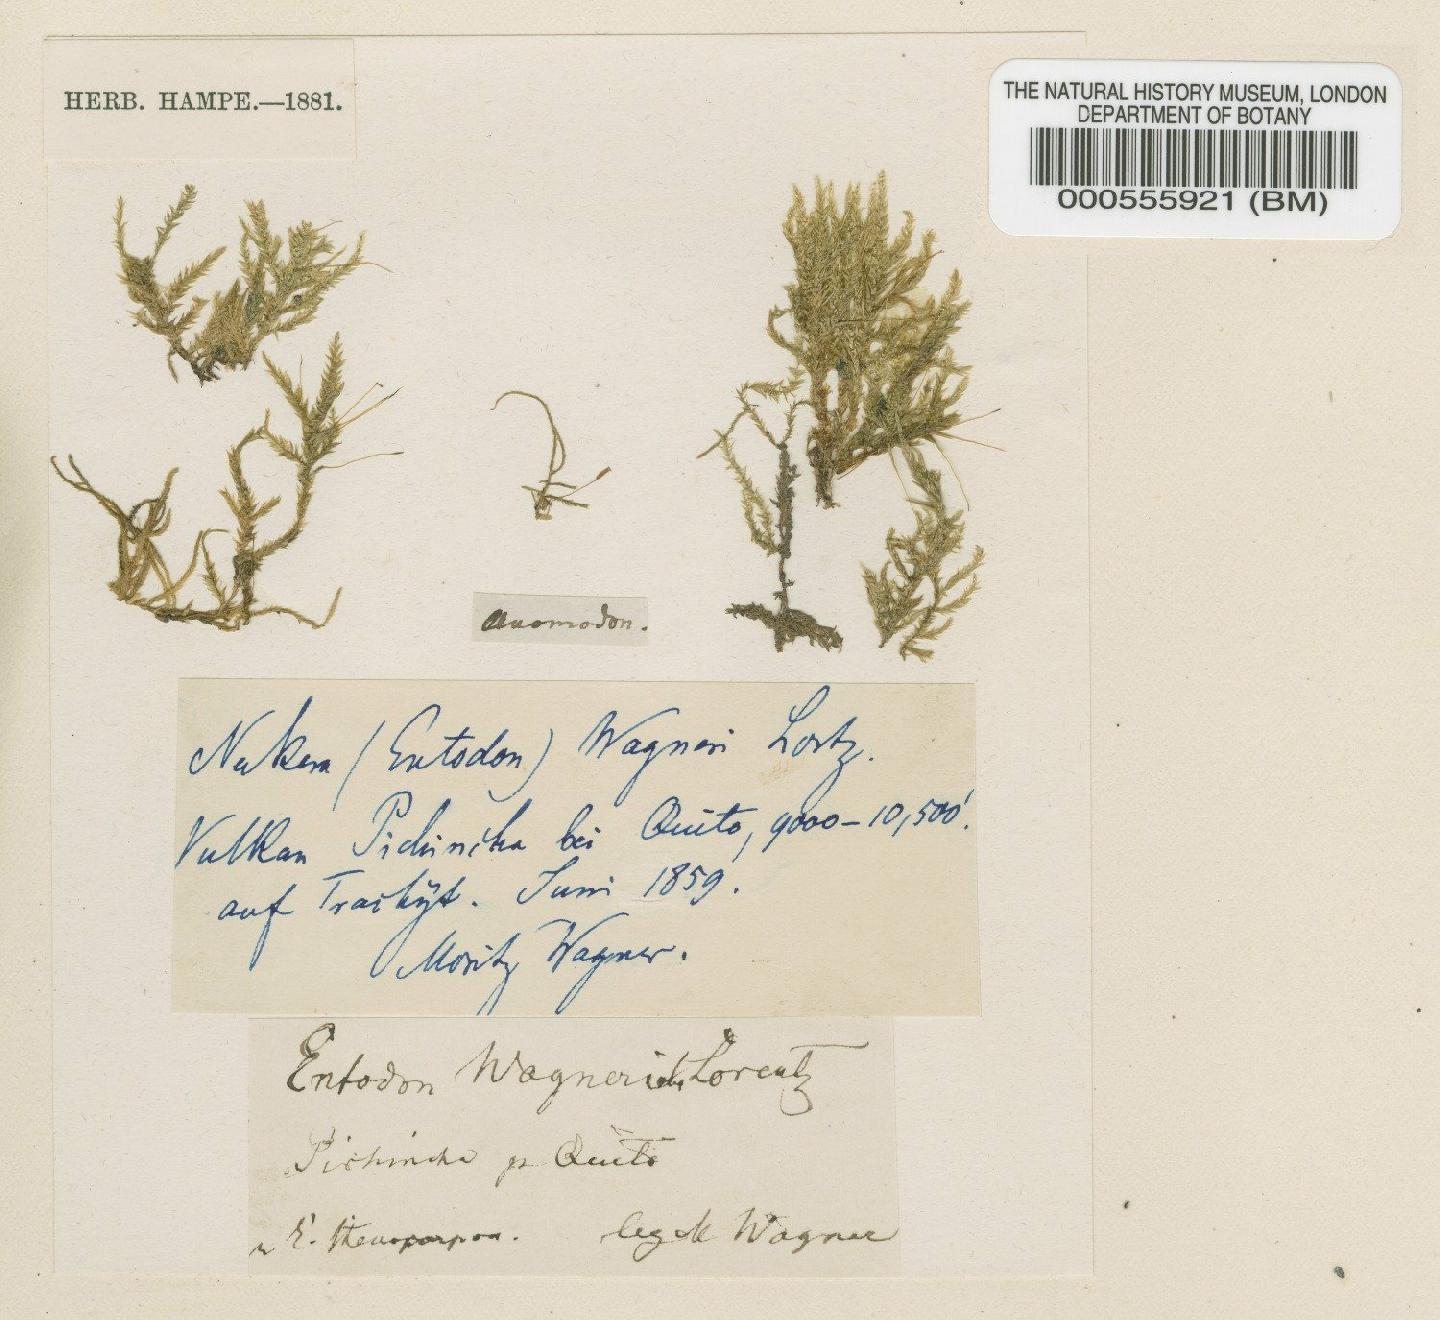 HERB. HAMPE.—1881.
THE NATURAL HISTORY MUSEUM, LONDON
DEPARTMENT OF BOTANY
000555921 (BM)
Anomodon.
Neckera (Entodon) Wagneri Lortz.
Vulkan Pichincha bei Quito, 9000–10,500'.
auf Trachÿt. Juni 1859.
Moritz Wagner.
Entodon Wagneri Lorentz
Pichincha pr Quito
E. stenocarpon. leg M Wagner